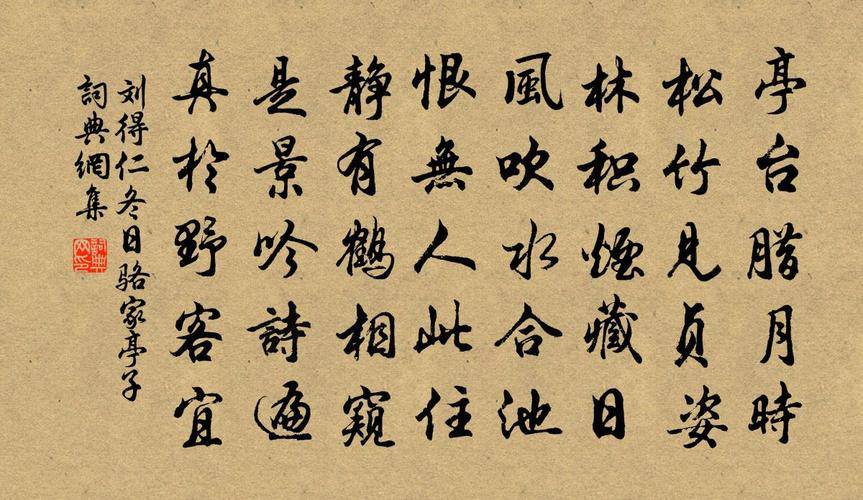 亭台腊月時
松竹見貞姿
林积煙藏日
風吹水合池
恨無人此住
静有鶴相窺
是景吟詩遍
真於野客宜
刘得仁冬日骆家亭子
詞典網集